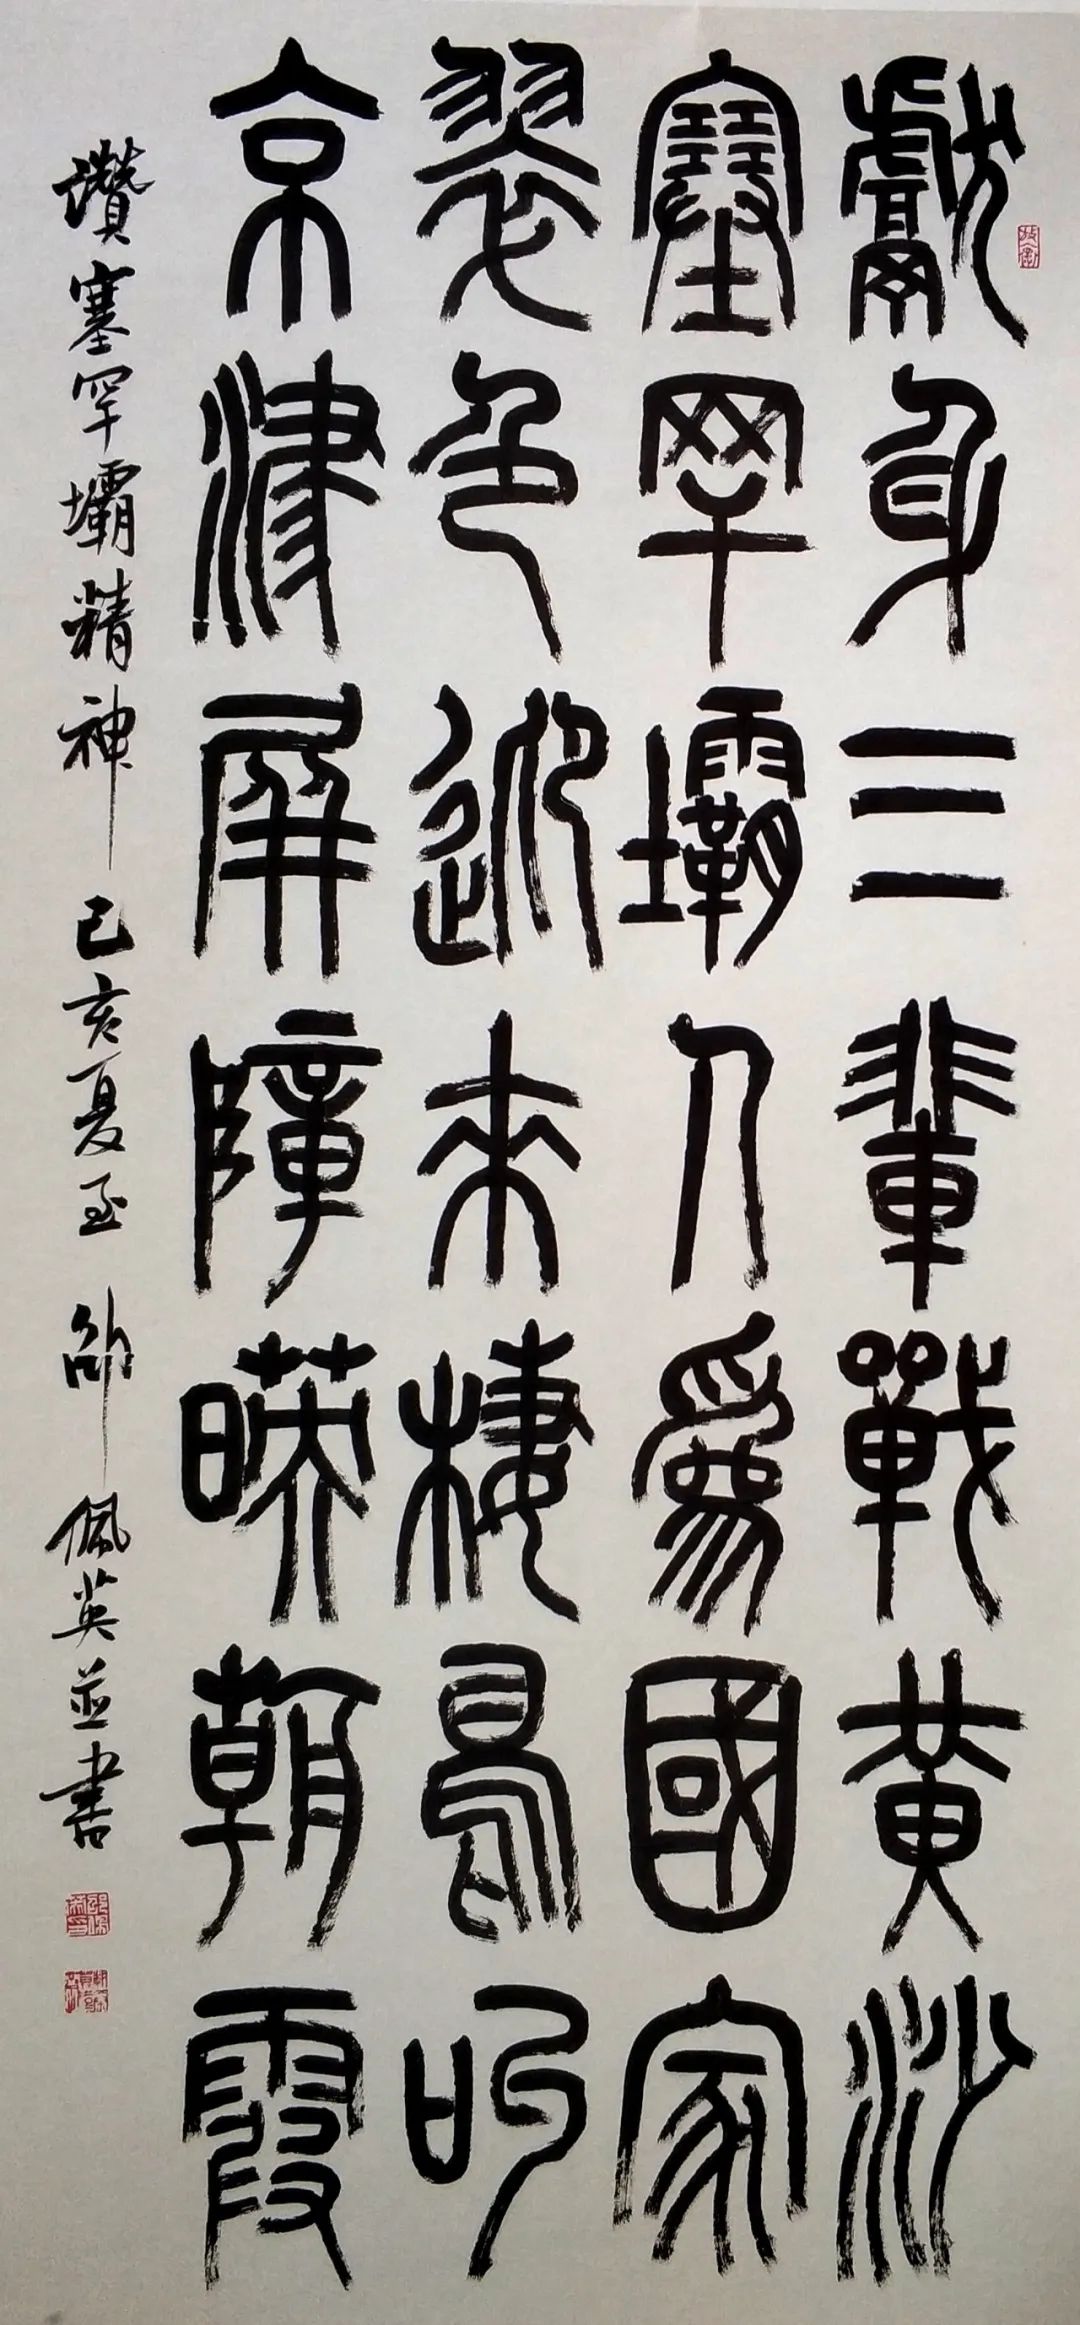 獻身三輩戰黃沙
塞罕壩人爲國家
翠色迎來棲鳥叫
京津屏障暎朝霞
讚塞罕壩精神 己亥夏至 邵佩英並書